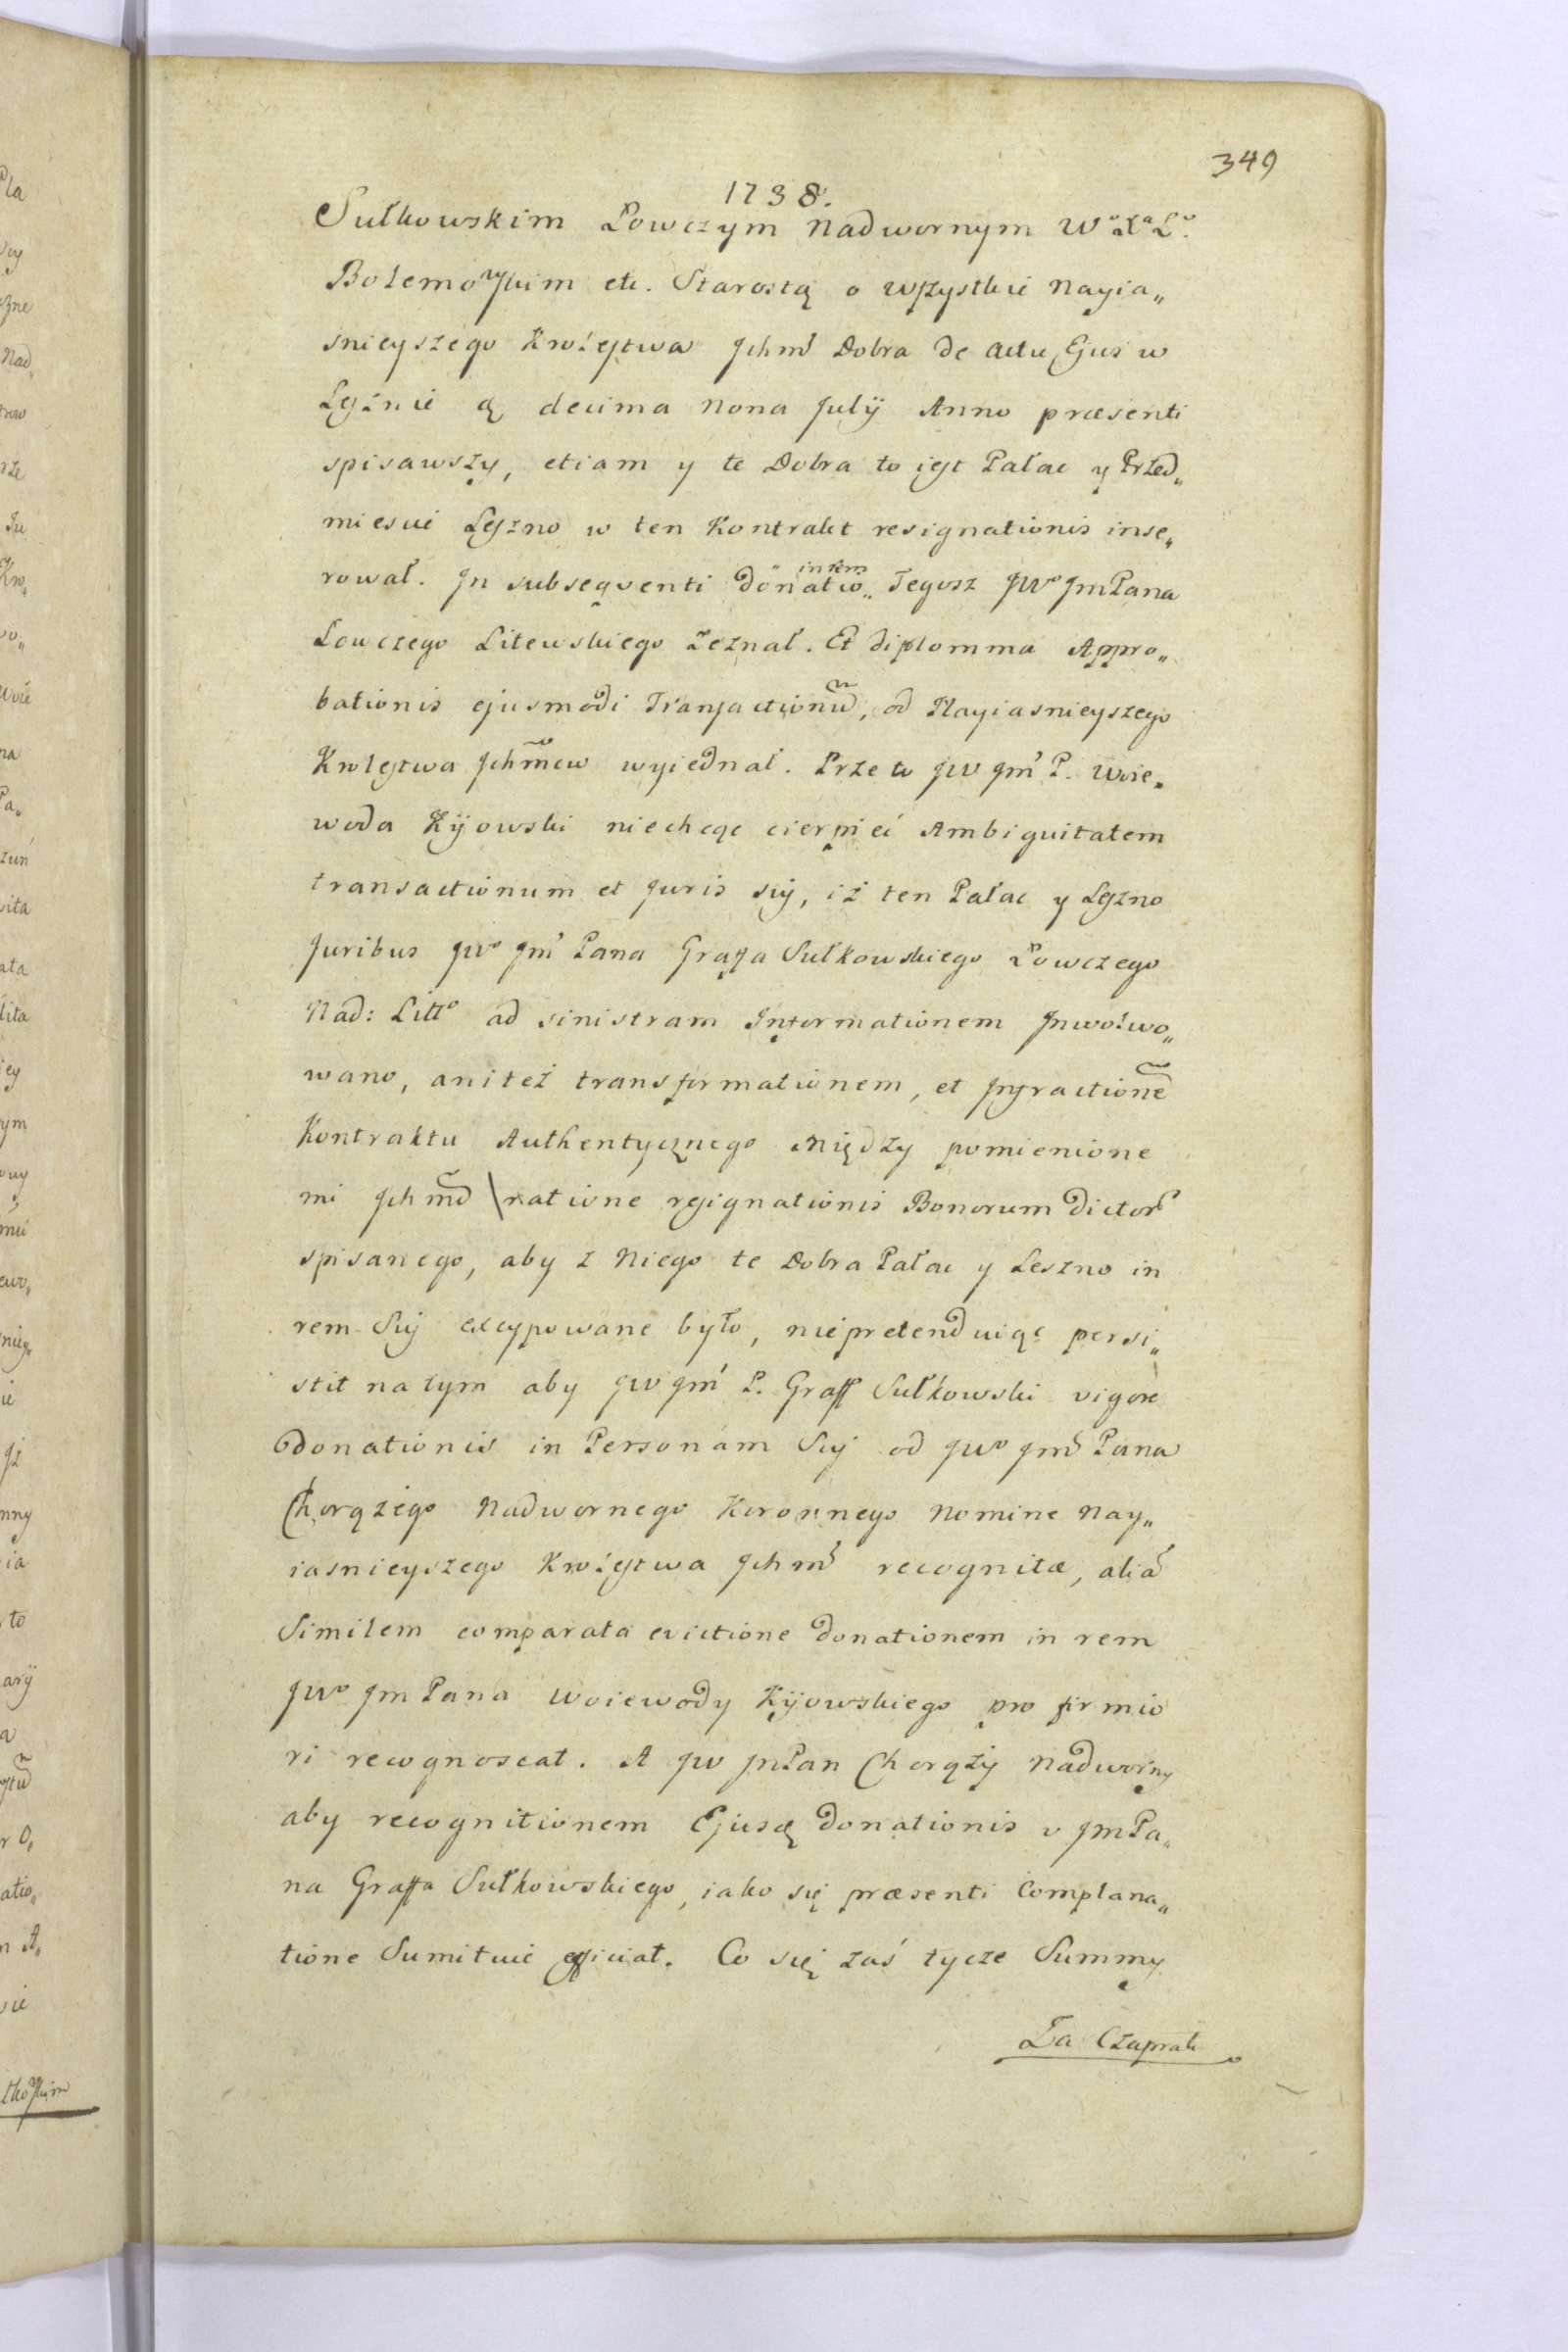 349
1738.
Sułkowskim Łowczym Nadwornym Wº Xª Lº.
Bolemoskim etc. Starostą o wszystkie Nayia„
śnieyszego Krolestwa Jchmś Dobra de actu Ejus w
Lesznie ą decima nona Julij Anno præsenti
spisawszy, etiam y te Dobra to jest Pałac y Przed„
miescie Leszno w ten Kontrakt resignationis inse„
rował. Jn subsequenti donatio„ in rem Tegosz JWº Jm Pana
Łowczego Litewskiego zeznał. Et diplomma Appro„
bationis ejusmodi Transactionũ, od Nayiasnieyszego
Krolestwa Jchmcw wyiednał. Prze to JW Jmć P. Woie„
woda Kijowski niechcąc cierpieć Ambiguitatem
transactionum et Juris sŭi, iż ten Pałac y Leszno
Juribus JWº Jmć Pana Graffa Sułkowskiego Łowczego
Nad: Littº ad sinistram Informationem Jnwolwo„
wano, ani też transformationem, et Jnfractionẽ
Kontraktu Authentycznego między pomienione
mi Jchmć ratione resignationis Bonorum dictor
spisanego, aby z Niego te Dobra Pałac y Leszno in
rem Sŭi excypowane było, niepretenduiąc persi„
stit na tym aby JW Jmć P. Graff Sułkowski vigore
donationis in Personam Sŭi od JWº Jmć Pana
Chorążego Nadwornego Koronnego Nomine Nay„
iasnieyszego Krolestwa Jchmć recognitæ, aliã
Similem comparata evictione donationem in rem
JWº Jm Pana Woiewody Kijowskiego pro firmio
ri recognoscat. A JW Jm Pan Chorąży Nadworny
aby recognitionem Ejusd donationis u Jm Pa„
na Graffa Sułkowskiego, iako się præsenti Complana„
tione Sumituie efficiat. Co się zaś tycze Summy
Za Czaprak